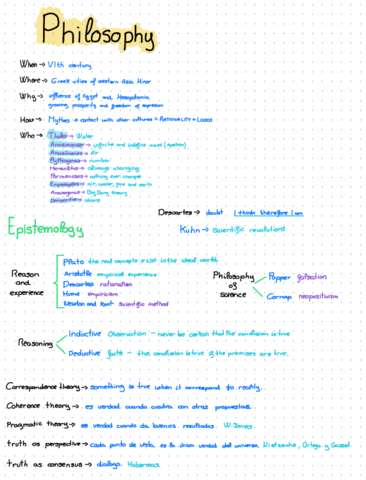 Philosophy
When → VIth century
Where → Greek cities of western Asia Minor
Why → influence of Egypt and Mesopotamia
growing prosperity and freedom of expression
How → Mythos → contact with other cultures = RATIONALITY = LOGOS
Who → Thales → Water
Anaximander → infinite and indefinite mass (apeiron)
Anaximenes → Air
Pythagoras → number
Heraclitus → always changing
Parmenides → nothing ever changes
Empedocles → air, water, fire and earth
Anaxagoras → Big Bang theory
Democritus → atoms
Descartes → doubt I think therefore I am
Epistemology
Kuhn → scientific revolutions
Reason and experience
Plato the real concepts exist in the ideal world
Aristotle empirical experience
Descartes rationalism
Hume empiricism
Newton and Kant- scientific method
Philosophy of science
Popper falsation
Carnap neopositivism
Reasoning
Inductive Observation - never be certain that the conclusion is true
Deductive facts - the conclusion is true if the premises are true.
Correspondence theory → something is true when it correspond to reality.
Coherence theory → es verdad cuando cuadra con otras propuestas.
Pragmatic theory → es verdad cuando da buenos resultados. W. James
truth as perspective → Cada punto de vista es la única verdad del universo. Nietzsche, Ortega y Gasset
truth as consensus → dialogo. Habermas.